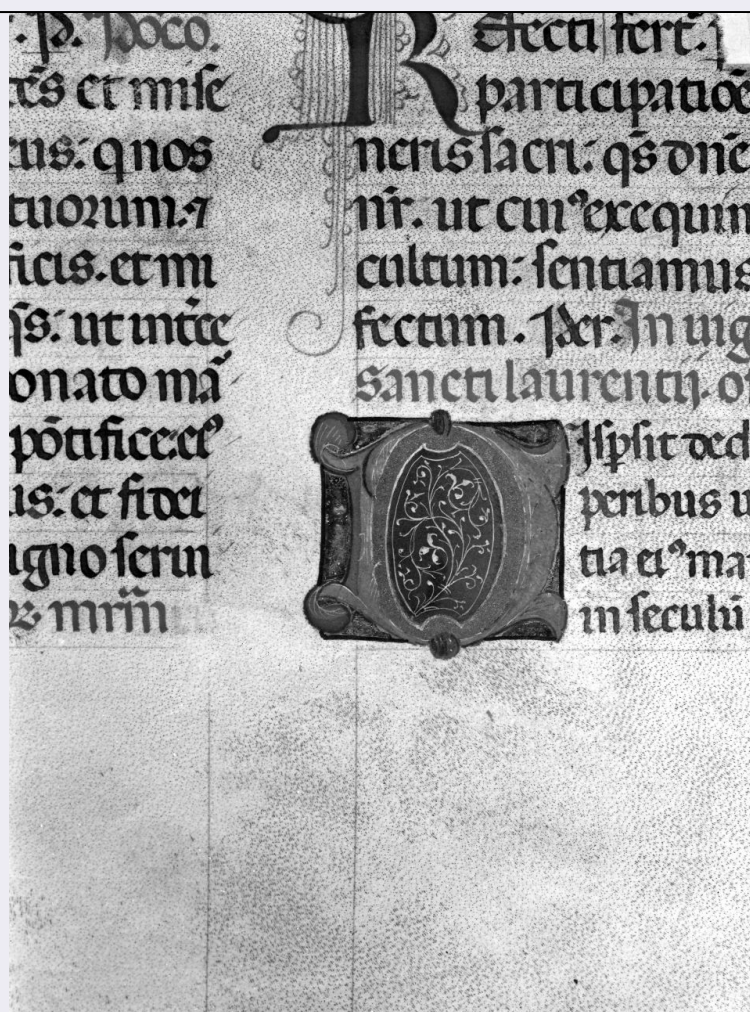 . P. Poco.
c̄s et mise
cus: q nos
tuorum. ⁊
ficis. et mi
q̄s: ut int̄ce
onato mā
pōtifice: eꝰ
us: et fidei
igno serui
mr̄m
R Efecti fert.
participatiōe
neris sacri: qs̄ dn̄e
nr̄. ut cuiꝰ exequim
cultum: sentiamus
fectum. Per. In uig
sancti laurentij. of
D Isp̱sit ded
peribus u
tia eiꝰ ma
in seculū